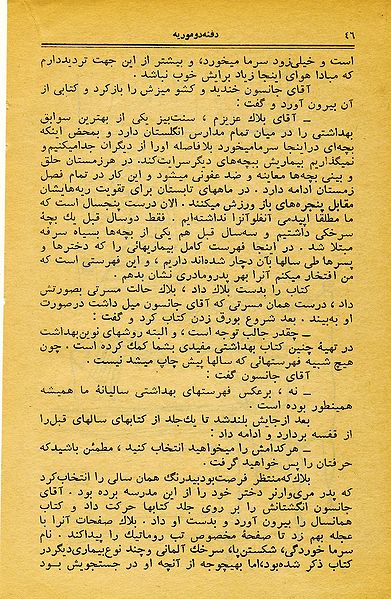 ۴۶
دفنه دوموریه
است و خیلی‌زود سرما میخورد، و بیشتر از این جهت تردیددارم
که مبادا هوای اینجا زیاد برایش خوب نباشد .
آقای جانسون خندید و کشو میزش را بازکرد و کتابی از
آن بیرون آورد و گفت :
ـ آقای بلاك عزیزم ، سنت‌بیز یکی از بهترین سوابق
بهداشتی را در میان تمام مدارس انگلستان دارد و بمحض اینکه
بچه‌ای دراینجا سرمامیخورد بلافاصله اورا از دیگران جدامیکنیم‌و
نمیگذاریم بیماریش ببچه‌های دیگرسرایت‌کند. در هرزمستان حلق
و بینی بچه‌ها معاینه و ضد عفونی میشود و این کار در تمام فصل
زمستان ادامه دارد . در ماههای تابستان برای تقویت ریه‌هایشان
مقابل پنجره‌های باز ورزش میکنند. الان درست پنجسال است که
ما مطلقاً اپیدمی آنفلوآنزا نداشته‌ایم . فقط دوسال قبل یك بچهٔ
سرخکی داشتیم و سه‌سال قبل هم یکی از بچه‌ها بسیاه سرفه
مبتلا شد . در اینجا فهرست کامل بیماریهائی را که دخترها و
پسرها طی سالها بآن دچار شده‌اند داریم ، و این فهرستی است که
من افتخار میکنم آنرا بهر پدرومادری نشان بدهم .
کتاب را بدست بلاك داد ، بلاك حالت مسرتی بصورتش
داد ، درست همان مسرتی که آقای جانسون میل داشت درصورت
او به‌بیند . بعد شروع بورق زدن کتاب کرد و گفت :
ـ چقدر جالب توجه است ، و البته روشهای نوین‌بهداشت
در تهیهٔ چنین کتاب بهداشتی مفیدی بشما کمك کرده است . چون
هیچ شبیه فهرستهائی که سالها پیش چاپ میشد نیست .
آقای جانسون گفت :
ـ نه ، برعکس فهرستهای بهداشتی سالیانهٔ ما همیشه
همینطور بوده است .
بعد ازجایش بلندشد تا یك‌جلد از کتابهای سالهای قبل‌را
از قفسه بردارد و ادامه داد :
ـ هرکدامش را میخواهید انتخاب کنید ، مطمئن باشیدکه
حرفتان را پس خواهید گرفت .
بلاك‌که‌منتظر فرصت‌بودبیدرنگ همان سالی را انتخاب‌کرد
که پدر مری‌وارنر دختر خود را از این مدرسه برده بود . آقای
جانسون انگشتانش را بر روی جلد کتابها حرکت داد و کتاب
همانسال را بیرون آورد و بدست او داد . بلاك صفحات آنرا با
عجله بهم زد تا صفحهٔ مخصوص تب روماتیك را پیداکند . نام
سرما خوردگی، شکستن‌پا، سرخك آلمانی وچند نوع‌بیماری‌دیگردر
کتاب ذکر شده‌بود،اما بهیچوجه از آنچه او در جستجویش بود